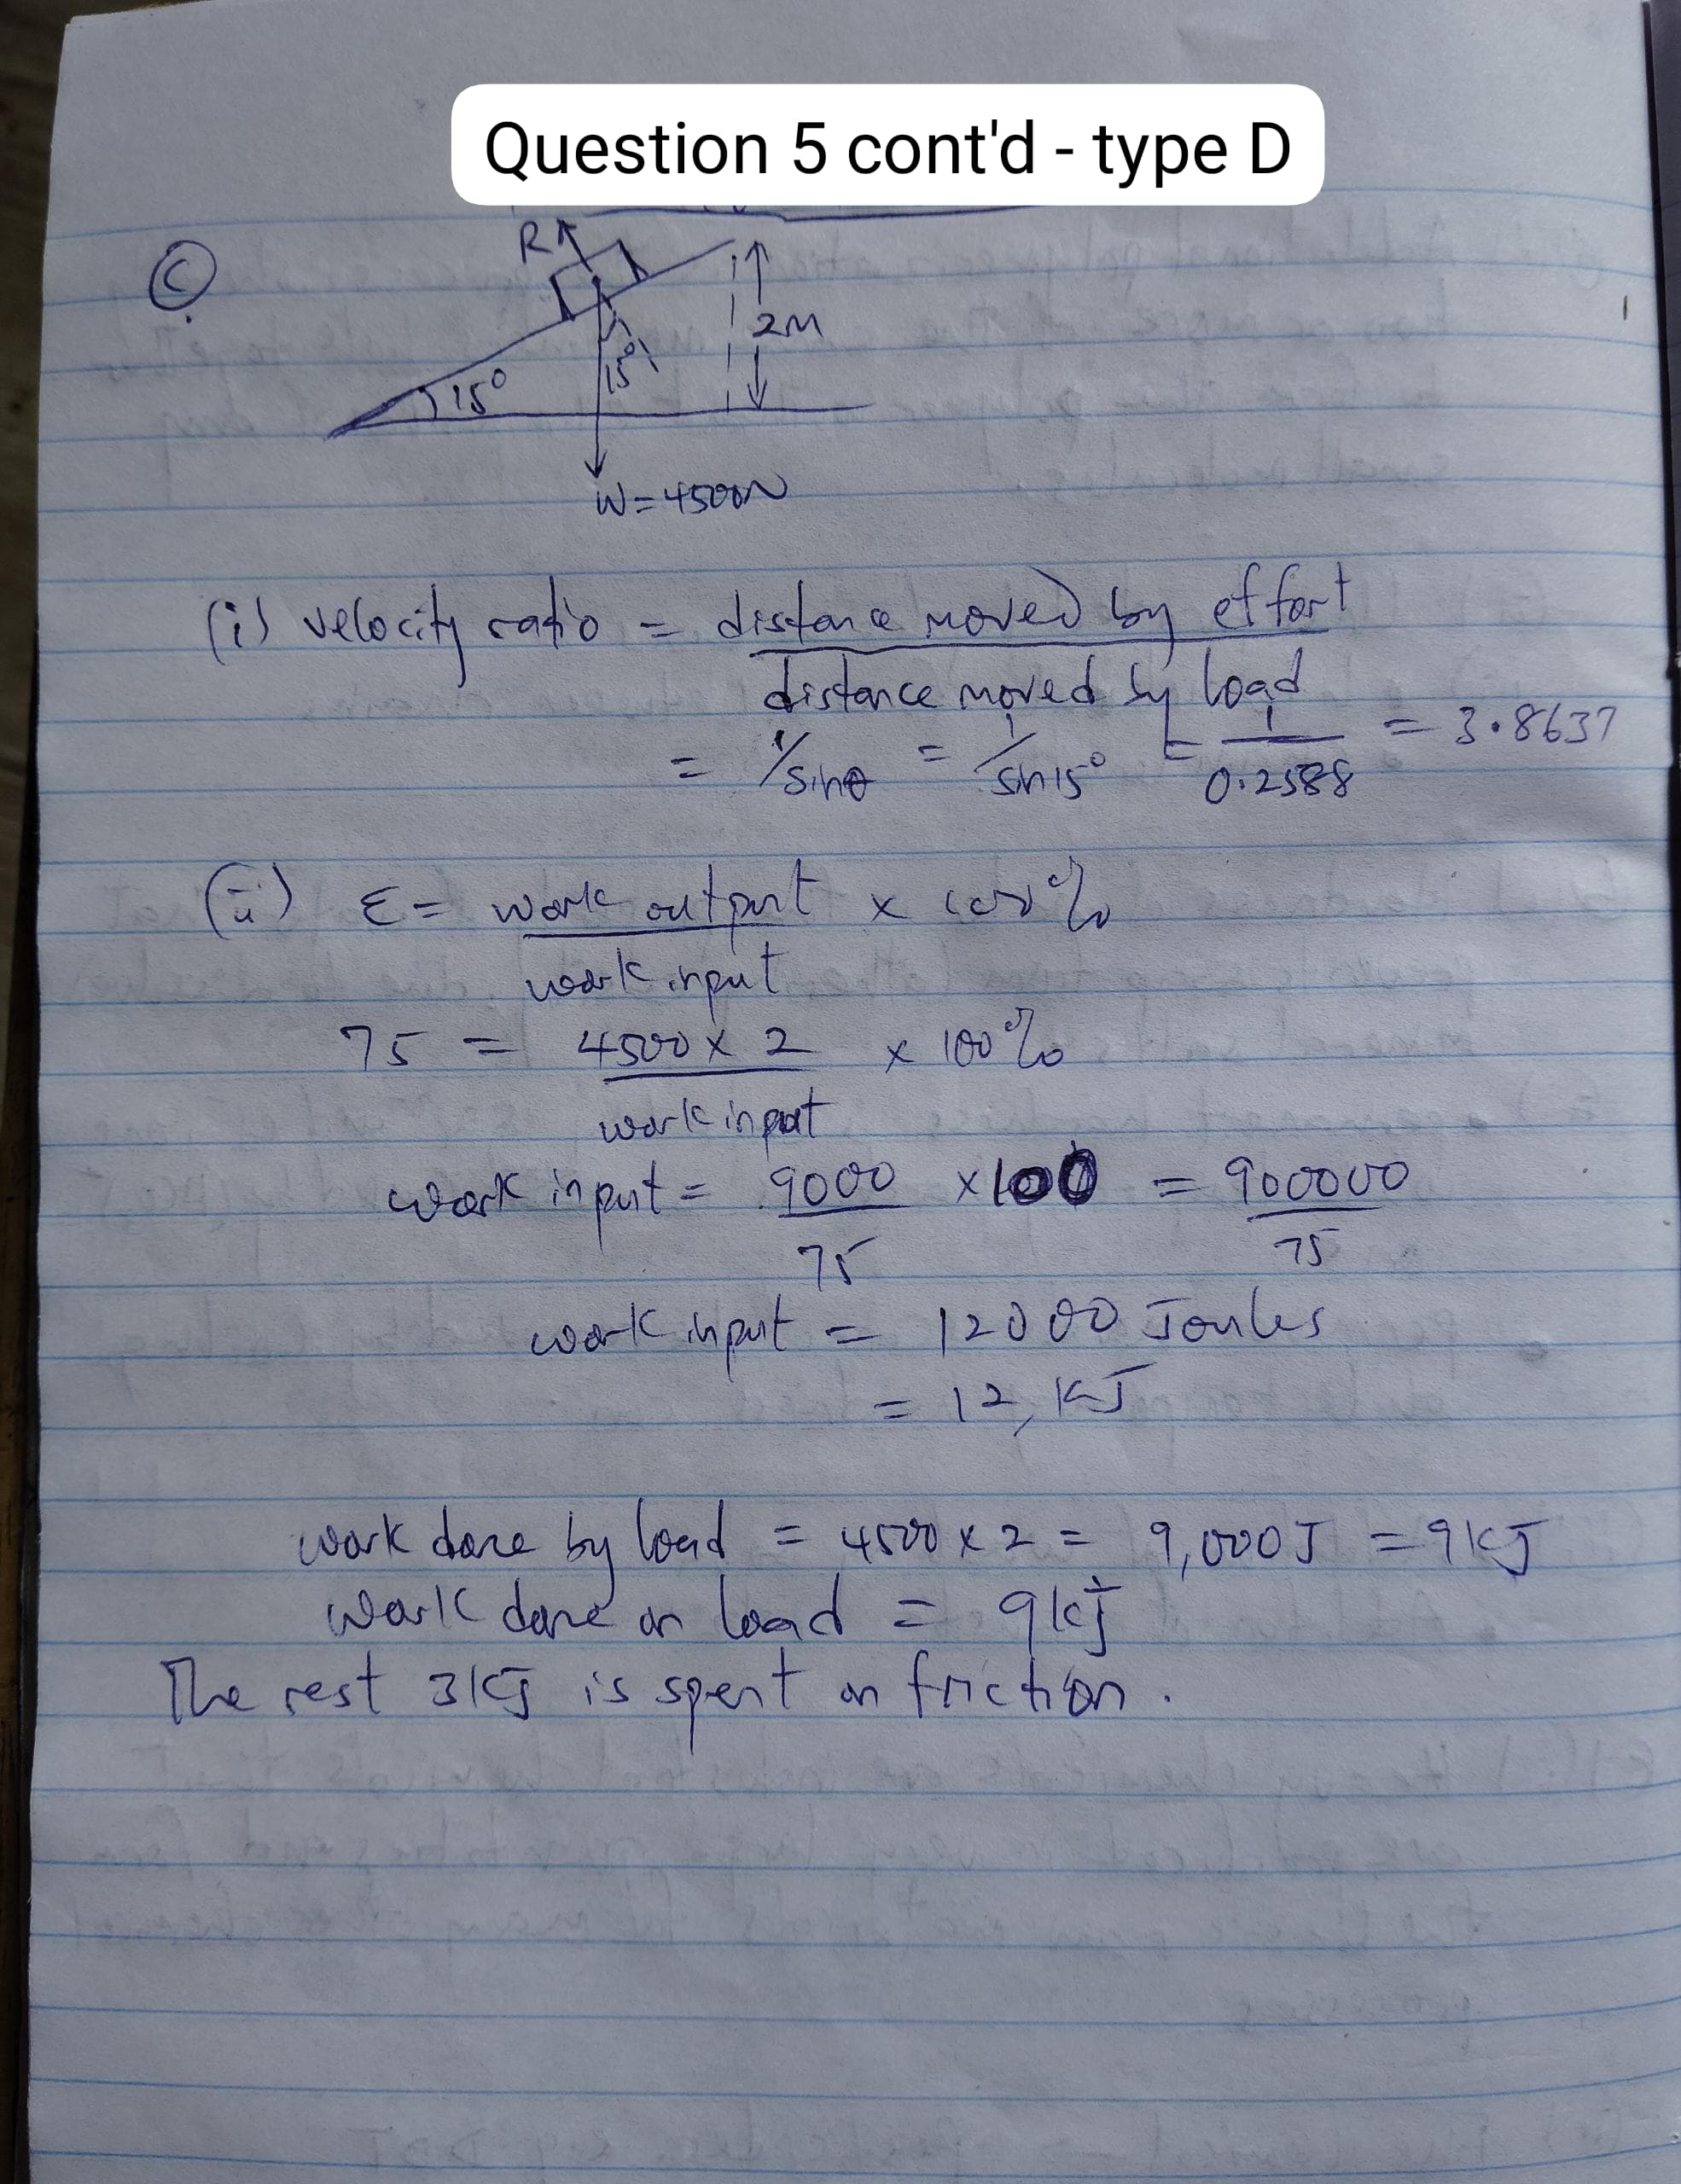 Question 5 cont'd - type D
R
C.
2M
15°
15°
W = 4500N
(i) velocity ratio = distance moved by effort
distance moved by load
= 1/sinθ = 1/sin15° = 1/0.2588 = 3.8637
(ii) ε = work output × 100%
work input
75 = 4500 × 2 × 100%
work input
work input = 9000 × 100 = 900000
75 75
work input = 12000 Joules
= 12, KJ
work done by load = 4500 × 2 = 9,000J = 9KJ
work done on load = 9KJ
The rest 3KJ is spent on friction.